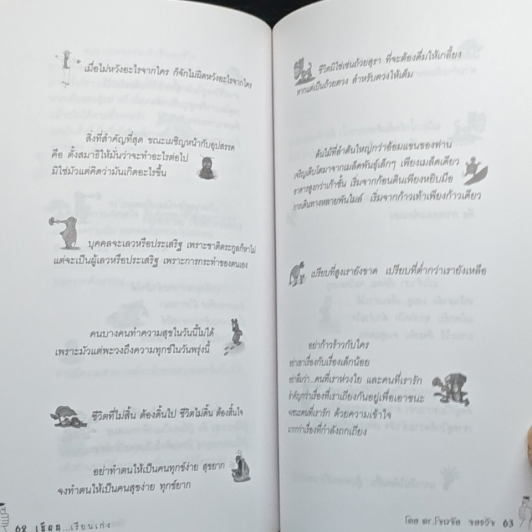 เมื่อไม่หวังอะไรจากใคร ก็จักไม่ผิดหวังอะไรจากใคร
สิ่งที่สำคัญที่สุด ขณะเผชิญหน้ากับอุปสรรค
คือ ตั้งสมาธิให้มั่นว่าจะทำอะไรต่อไป
มิใช่มัวแต่คิดว่ามันเกิดอะไรขึ้น
บุคคลจะเลวหรือประเสริฐ เพราะชาติตระกูลก็หาไม่
แต่จะเป็นผู้เลวหรือประเสริฐ เพราะการกระทำของตนเอง
คนบางคนทำความสุขในวันนี้ไม่ได้
เพราะมัวแต่พะวงถึงความทุกข์ในวันพรุ่งนี้
ชีวิตที่ไม่สิ้น ต้องดิ้นไป ชีวิตไม่ดิ้น ต้องสิ้นใจ
อย่าทำตนให้เป็นคนทุกข์ง่าย สุขยาก
จงทำตนให้เป็นคนสุขง่าย ทุกข์ยาก
62 เรียน...เรียนเก่ง
ชีวิตมิใช่เช่นถ้วยสุรา ที่จะต้องดื่มให้เกลี้ยง
หากแต่เป็นถ้วยตวง สำหรับตวงให้เต็ม
ต้นไม้ที่ลำต้นใหญ่กว่าอ้อมแขนของท่าน
เจริญเติบโตมาจากเมล็ดพันธุ์เล็กๆ เพียงเมล็ดเดียว
อาคารสูงกว่าเก้าชั้น เริ่มจากก้อนดินเพียงหยิบมือ
การเดินทางหลายพันไมล์ เริ่มจากก้าวเท้าเพียงก้าวเดียว
เปรียบที่สูงเรายังขาด เปรียบที่ต่ำกว่าเรายังเหลือ
อย่าก้าวร้าวกับใคร
อย่าเอาเรื่องกับเรื่องเล็กน้อย
คนที่ห่วงใย และคนที่เรารัก
สำคัญกว่าเรื่องที่เราเถียงกันอยู่เพื่อเอาชนะ
จงชนะคนที่เรารัก ด้วยความเข้าใจ
มากกว่าเรื่องที่กำลังถกเถียง
โดย ดร. 63